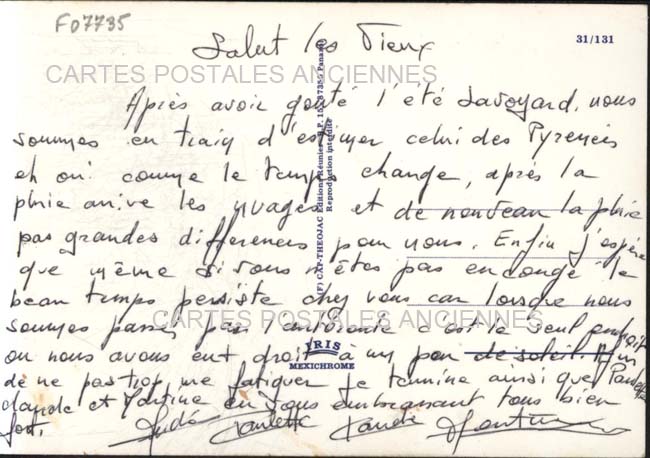 F07735
Salut les Vieux
31/131
CARTES POSTALES ANCIENNES
Après avoir goûté l'été Savoyard, nous
sommes en train d'estimer celui des Pyrenées
eh oui comme le temps change, après la
pluie arrive les nuages et de nouveau la pluie
pas grandes differences pour nous. Enfin j'espère
que même si vous n'êtes pas en congé le
beau temps persiste chez vous car lorsque nous
sommes passés par c'est le seul endroit
CARTES POSTALES ANCIENNES
où nous avons eut droit à un peu de soleil. Afin
de ne pas trop me fatiguer je termine ainsi que Paulette
claude et Martine en vous embrassant tous bien
fort.
Paulette Claude Martine
(F) CAP-THEOJAC Editions Réunies B.P. Panazol
Reproduction interdite
IRIS
MEXICHROME